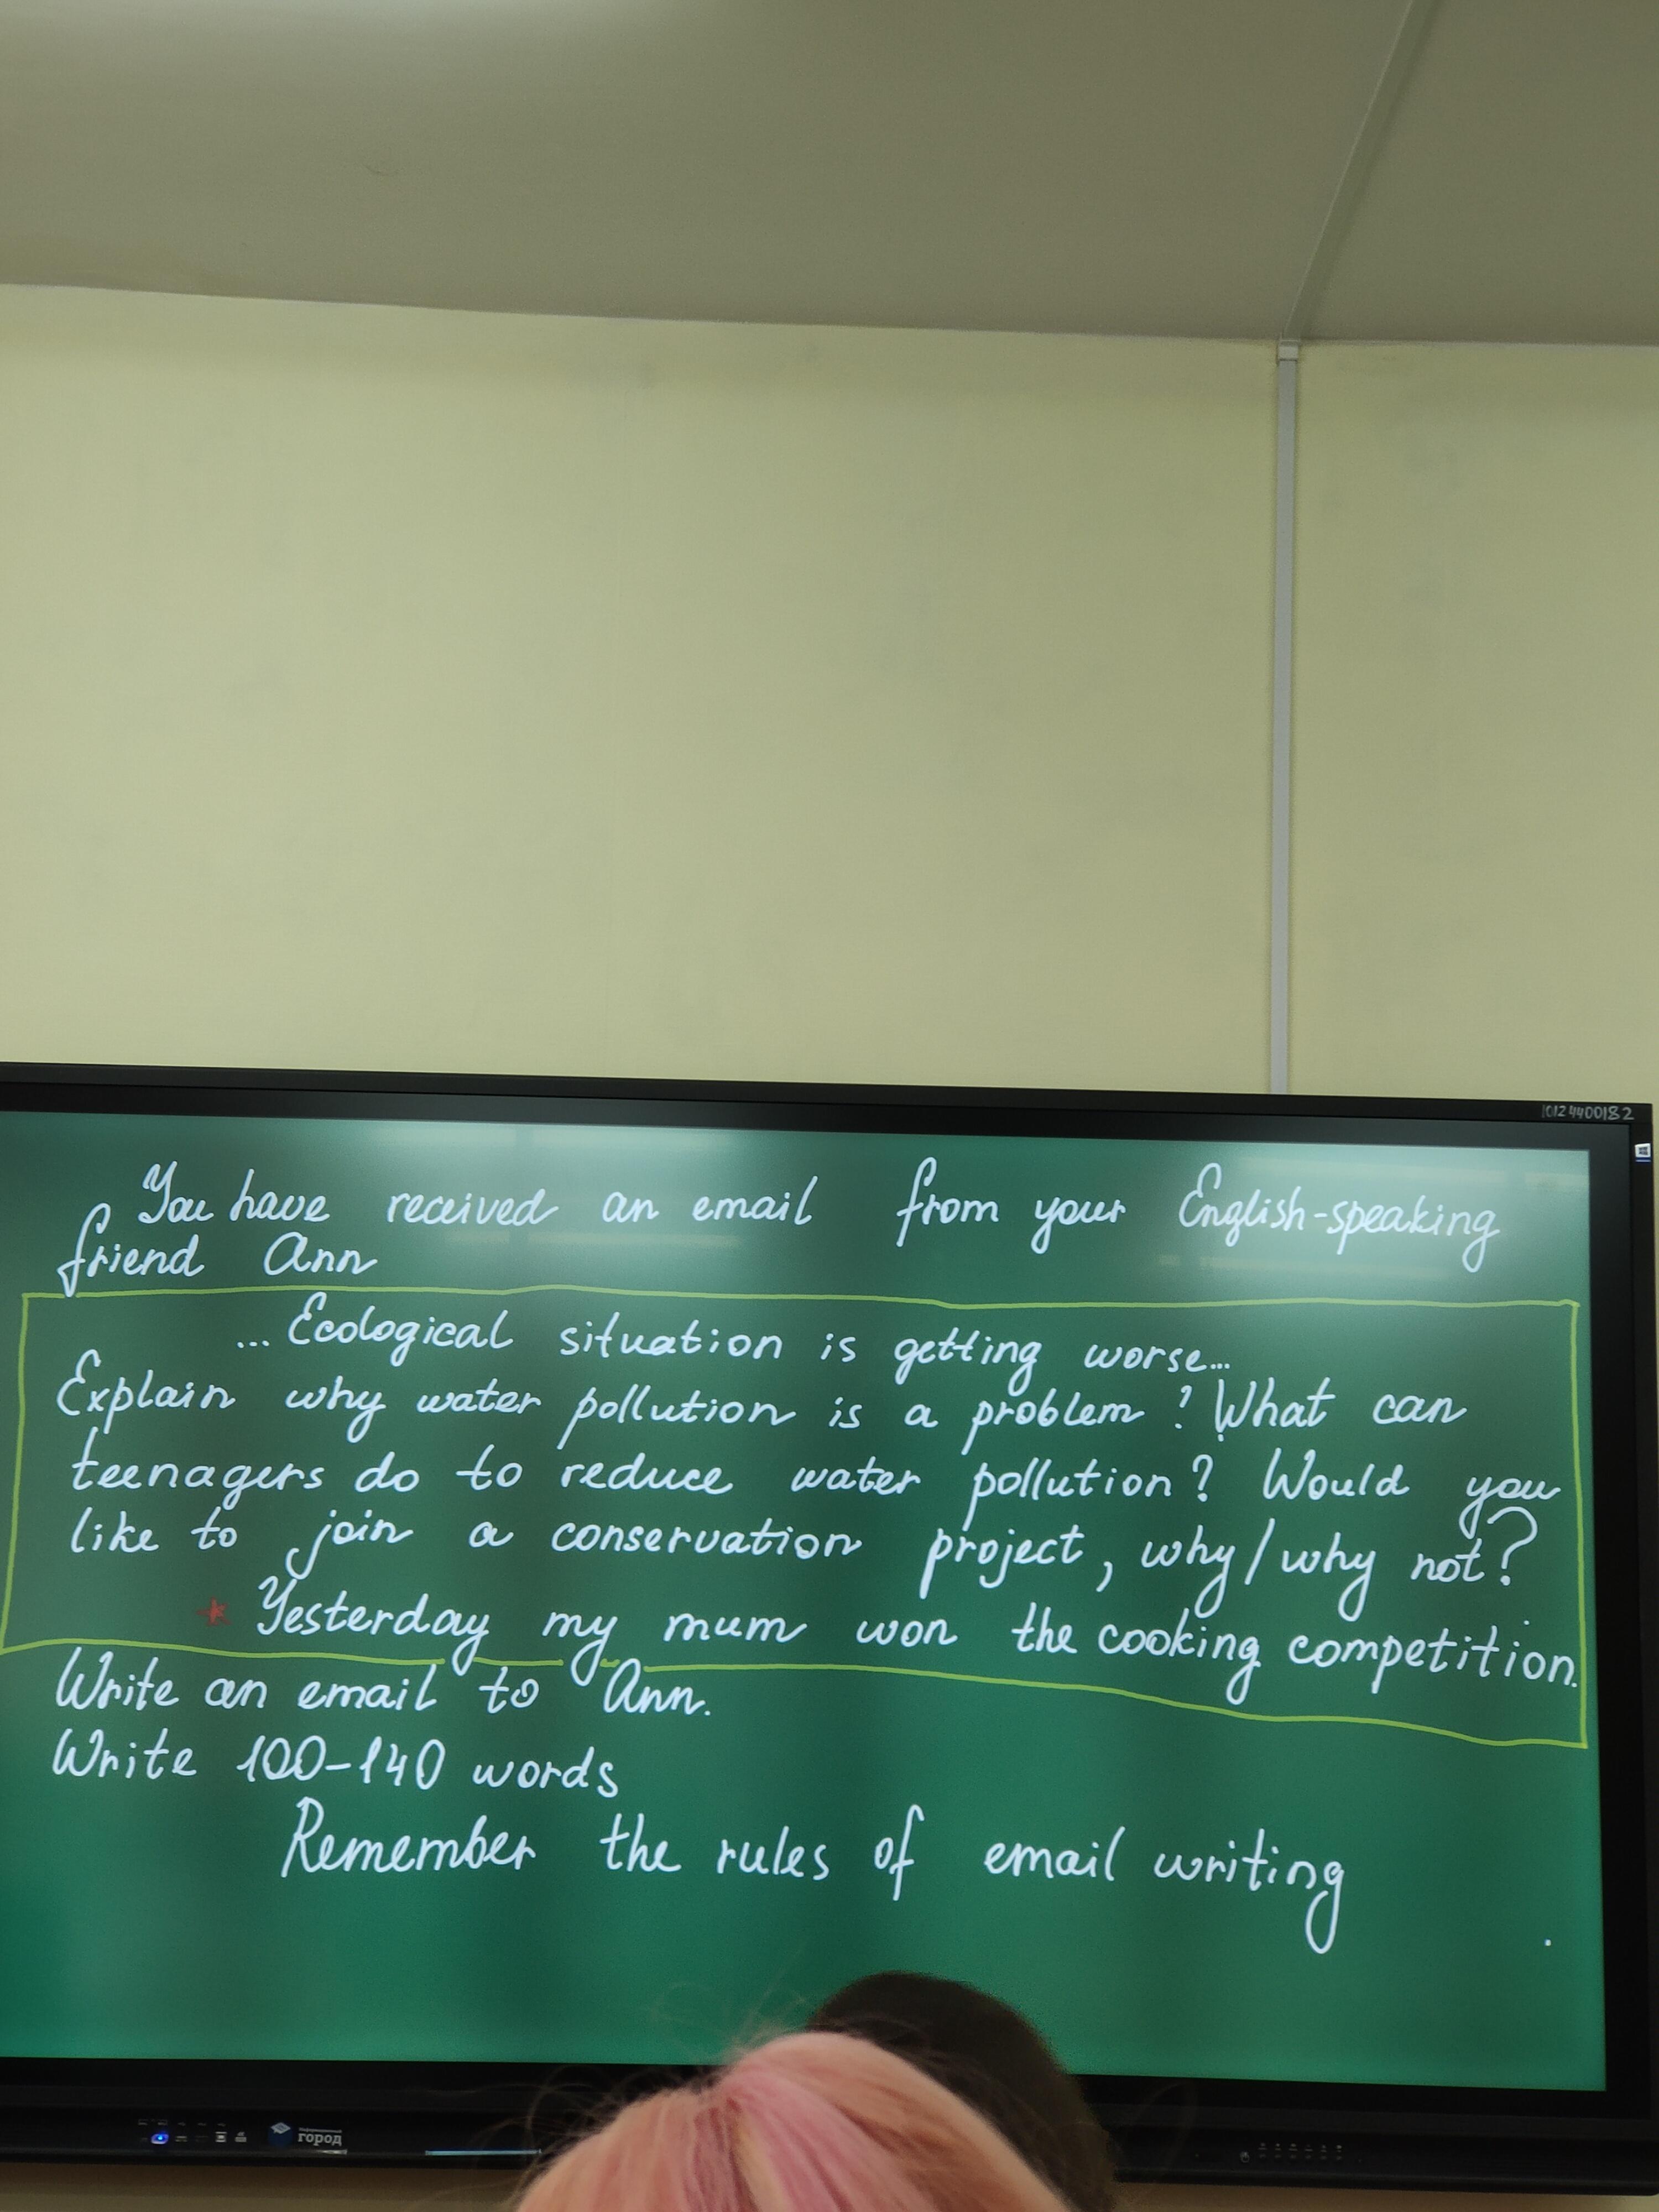 10124400182
You have received an email from your English-speaking
friend Ann
... Ecological situation is getting worse...
Explain why water pollution is a problem? What can
teenagers do to reduce water pollution? Would you
like to join a conservation project, why/why not?
* Yesterday my mum won the cooking competition.
Write an email to Ann.
Write 100-140 words
Remember the rules of email writing
город